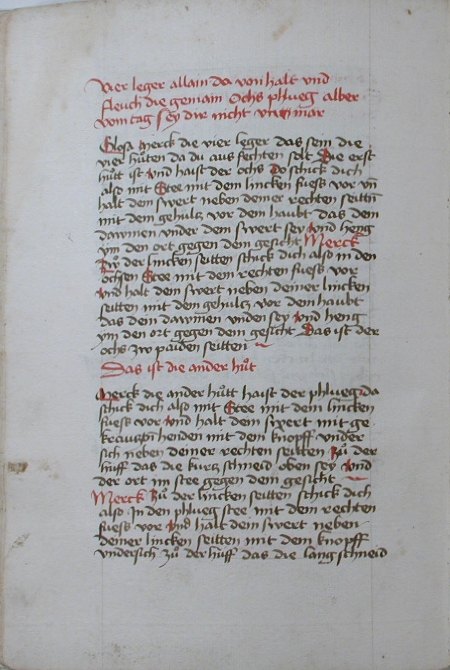 Vier leger allain da von halt vnd
fleuch die gemain Ochs phlueg alber
vom tag sey dir nicht vnmar
Glosa Merck die vier leger das sein die
vier hůten da du aus fechten solt Die erst
hůt ist vnd haist der ochs Do schick dich
also mit Stee mit dem lincken fuess vor vn̄
halt dem swert neben deiner rechten seittñ
mit dem gehulcz vor dem haubt das dem
dawmen vnder dem swert sey vnd heng
ym den ort gegen dem gesicht Merck
Zů der lincken seitten schick dich also in den
ochsen Stee mit dem rechten fuess vor
vnd halt dem swert neben deiner lincken
seitten mit dem gehulcz vor dem haubt
das dein dawmen vnden sey vnd heng
ym den ort gegen dem gesicht Das ist der
ochs zw paiden seitten
Das ist die ander hůt
Merck die ander hůtt haist der phlueg da
schick dich also mit Stee mit dem lincken
fuess vor vnd halt dem swert mit ge
krautzñ henden mit dem knopff vnder
sich neben deiner rechten seitten zů der
huff das die kurcz schneid oben sey vnd
der ort im stee gegen dem gesicht
Merck zů der lincken seitten schick dich
also In den phlueg stee mit dem rechten
fuess vor vnd halt dem swert neben
deiner lincken seitten mit dem knopff
vndersich zů der hůff das die lang schneid